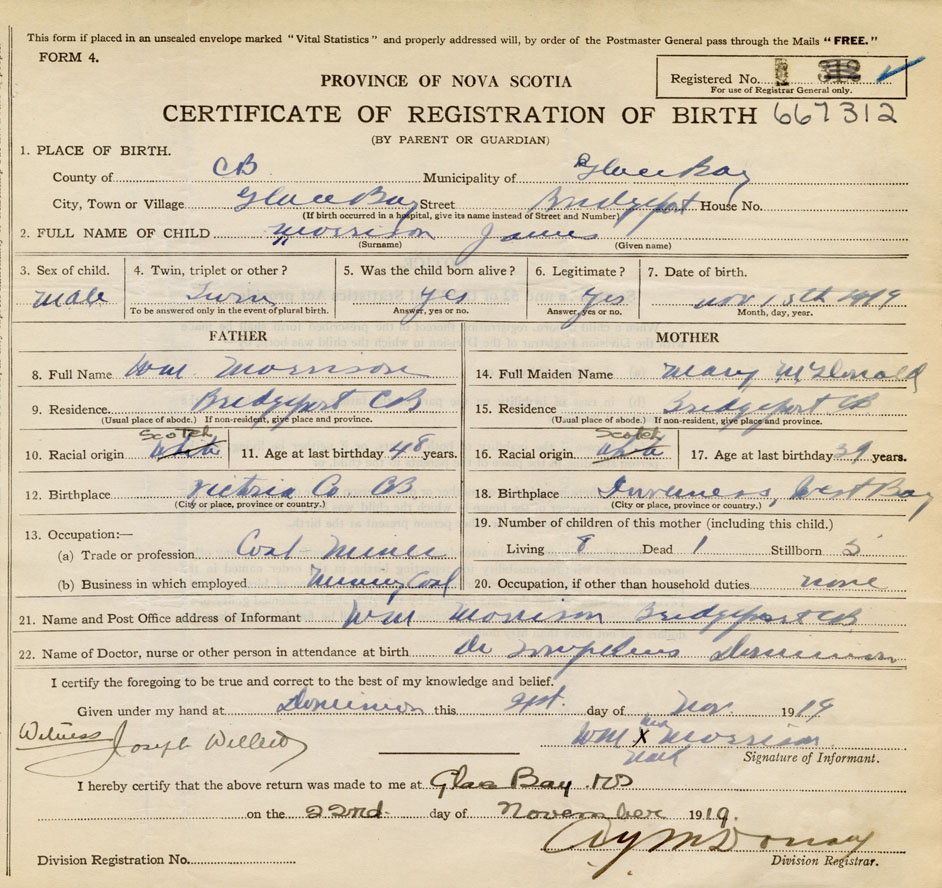 This form if placed in an unsealed envelope marked "Vital Statistics" and properly addressed will, by order of the Postmaster General pass through the Mails "FREE."
FORM 4.
Registered No. 312
For use of Registrar General only.
PROVINCE OF NOVA SCOTIA
CERTIFICATE OF REGISTRATION OF BIRTH 667312
(BY PARENT OR GUARDIAN)
1. PLACE OF BIRTH.
County of CB Municipality of Glace Bay
City, Town or Village Glace Bay Street Bridgeport House No.
(If birth occurred in a hospital, give its name instead of Street and Number)
2. FULL NAME OF CHILD Morrison James
(Surname) (Given name)
3. Sex of child. 4. Twin, triplet or other? 5. Was the child born alive? 6. Legitimate? 7. Date of birth.
Male Twin yes yes Nov 15th 1919
To be answered only in the event of plural birth. Answer, yes or no. Answer, yes or no. Month, day, year.
FATHER MOTHER
8. Full Name Wm Morrison 14. Full Maiden Name Mary McDonald
9. Residence Bridgeport CB 15. Residence Bridgeport CB
(Usual place of abode.) If non-resident, give place and province. (Usual place of abode.) If non-resident, give place and province.
Scotch Scotch
10. Racial origin White 11. Age at last birthday 48 years. 16. Racial origin White 17. Age at last birthday 39 years.
12. Birthplace Victria Co CB 18. Birthplace Inverness, West Bay
(City or place, province or country.) (City or place, province or country.)
13. Occupation:— 19. Number of children of this mother (including this child.)
(a) Trade or profession Coal-Miner Living 8 Dead 1 Stillborn
(b) Business in which employed Mining Coal 20. Occupation, if other than household duties. none
21. Name and Post Office address of Informant Wm Morrison Bridgeport CB
22. Name of Doctor, nurse or other person in attendance at birth Dr Dominion
I certify the foregoing to be true and correct to the best of my knowledge and belief.
Given under my hand at Dominion this day of Nov. 1919
Witness Joseph
Wm his X mark Morrison
Signature of Informant.
I hereby certify that the above return was made to me at Glace Bay NS
on the 22nd day of November 1919.
Division Registration No. Division Registrar.